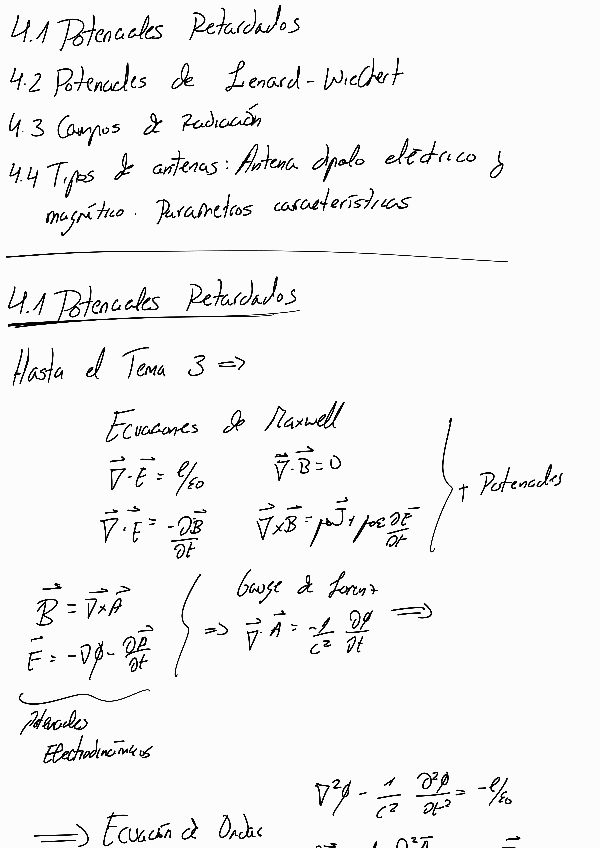 4.1 Potenciales Retardados
4.2 Potenciales de Lenard-Wiechert
4.3 Campos de Radiación
4.4 Tipos de antenas: Antena dipolo eléctrico y
magnético. Parametros característicos
4.1 Potenciales Retardados
Hasta el Tema 3 =>
Ecuaciones de Maxwell
∇⃗·E⃗ = ρ/ε₀ ∇⃗·B⃗ = 0
∇⃗·E⃗ = -∂B⃗/∂t ∇⃗×B⃗ = μJ⃗ + με ∂E⃗/∂t } + Potenciales
B⃗ = ∇⃗×A⃗
E⃗ = -∇φ - ∂A⃗/∂t } => Gauge de Lorenz ∇⃗·A⃗ = -1/c² ∂φ/∂t =>
Potenciales
Electrodinámicos
∇²φ - 1/c² ∂²φ/∂t² = -ρ/ε₀
=> Ecuación de Ondas